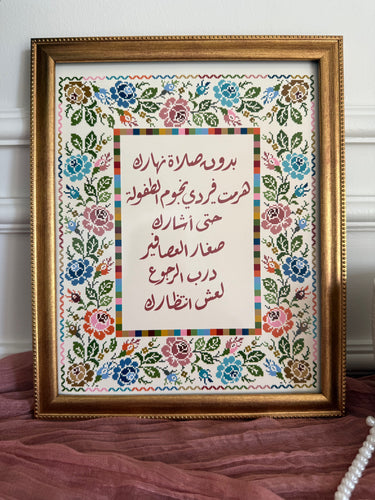 بدون صلاة نهارك
هرمت فردي نجوم الطفولة
حتى أشارك
صغار العصافير
درب الرجوع
لعش انتظارك